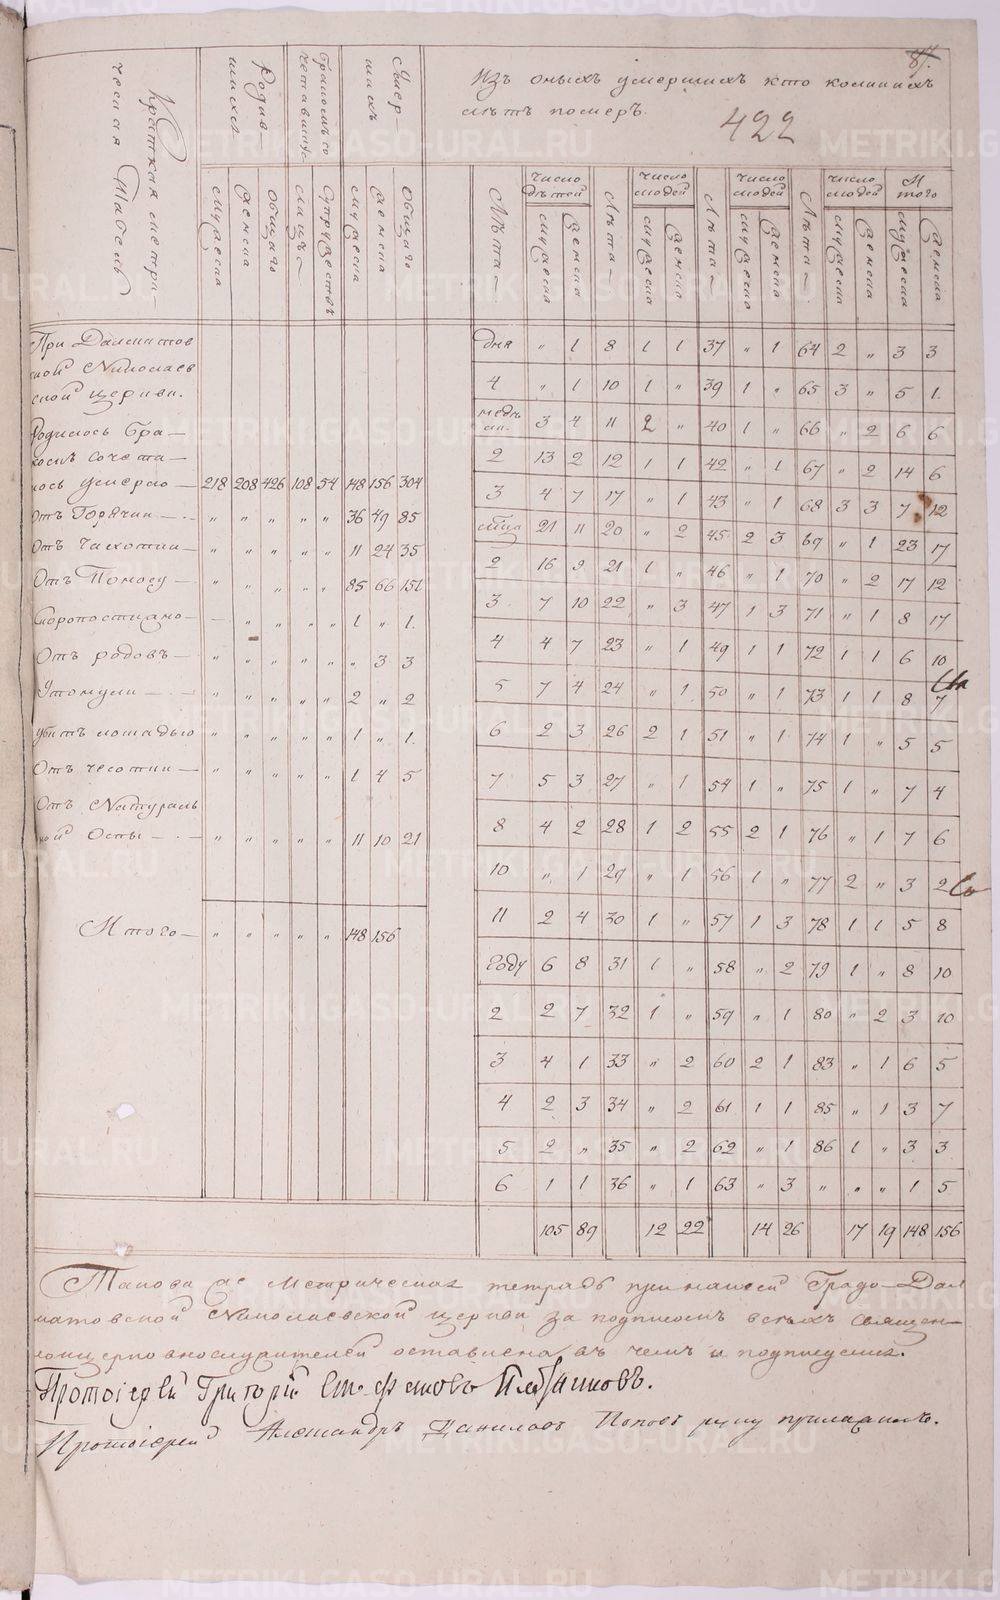 87.
Изъ оныхъ умершихъ кто коликихъ
лѣтъ померъ.
422
Краткая метри-
ческая Табель
Родив-
шихся
бракомъ со
четавшихся
Умер-
шихъ
мужеска
женска
общаго
лицъ
супружествъ
мужеска
женска
общаго
Лѣта
число дѣтей
мужеска
женска
Лѣта
число людей
мужеска
женска
Лѣта
число людей
мужеска
женска
Лѣта
число людей
мужеска
женска
Итого
мужеска
женска
При Далматов
ской Николаев
ской церкви.
Родилось бра-
комъ сочета-
лось умерло 218 208 426 108 54 148 156 304
Отъ Горячки " " " " " 36 49 85
Отъ Чахотки " " " " " 11 24 35
Отъ Поносу " " " " " 85 66 151
Скоропостижно " " " " 1 " 1.
Отъ родовъ " " " " " " 3 3
Утонули " " " " " 2 " 2
убитъ лошадью " " " " " 1 " 1.
Отъ чесотки " " " " " 1 4 5
Отъ Натураль
ной Оспы " " " " " 11 10 21
Итого " " " " " 148 156
дня " 1 8 1 1 37 " 1 64 2 " 3 3
4 " 1 10 1 " 39 1 " 65 3 " 5 1.
3 4 11 2 " 40 1 " 66 " 2 6 6
2 13 2 12 1 1 42 " 1 67 " 2 14 6
3 4 7 17 " 1 43 " 1 68 3 3 7 12
21 11 20 " 2 45 2 3 69 " 1 23 17
2 16 9 21 1 " 46 " 1 70 " 2 17 12
3 7 10 22 " 3 47 1 3 71 " 1 8 17
4 4 7 23 " 1 49 1 1 72 1 1 6 10
5 7 4 24 " 1 50 " 1 73 1 1 8 7
6 2 3 26 2 1 51 " 1 74 1 " 5 5
7 5 3 27 " 1 54 1 " 75 1 " 7 4
8 4 2 28 1 2 55 2 1 76 " 1 7 6
10 " 1 29 " 1 56 1 " 77 2 " 3 2
11 2 4 30 1 " 57 1 3 78 1 1 5 8
Году 6 8 31 1 " 58 " 2 79 1 " 8 10
2 2 7 32 1 " 59 " 1 80 " 2 3 10
3 4 1 33 " 2 60 2 1 83 " 1 6 5
4 2 3 34 " 2 61 1 1 85 " 1 3 7
5 2 " 35 " 2 62 " 1 86 1 " 3 3
6 1 1 36 " 1 63 " 3 " " " 1 5
105 89 12 22 14 26 17 19 148 156
Такова же Метрическая тетрадь при нашей Градо-Дал
матовской Николаевской церкви за подписомъ всѣхъ священ-
ноцерковнослужителей оставлена въ чемъ и подписуемся.
Протоіерей Григорій Стефановъ Плотниковъ.
Протоіерей Александръ Даниловъ Поповъ руку приложилъ.
METRIKI.GASO-URAL.RU